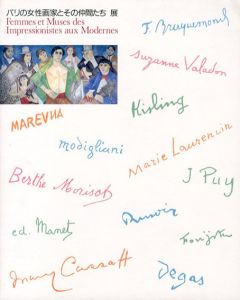 パリの女性画家とその仲間たち 展
Femmes et Muses des
Impressionistes aux Modernes
F. Bracquemond
Suzanne Valadon
MAREVNA
Kisling
modigliani
Marie Laurencin
Berthe Morisot
J Puy
Renoir
ed. Manet
Foujita
Mary Cassatt
Degas